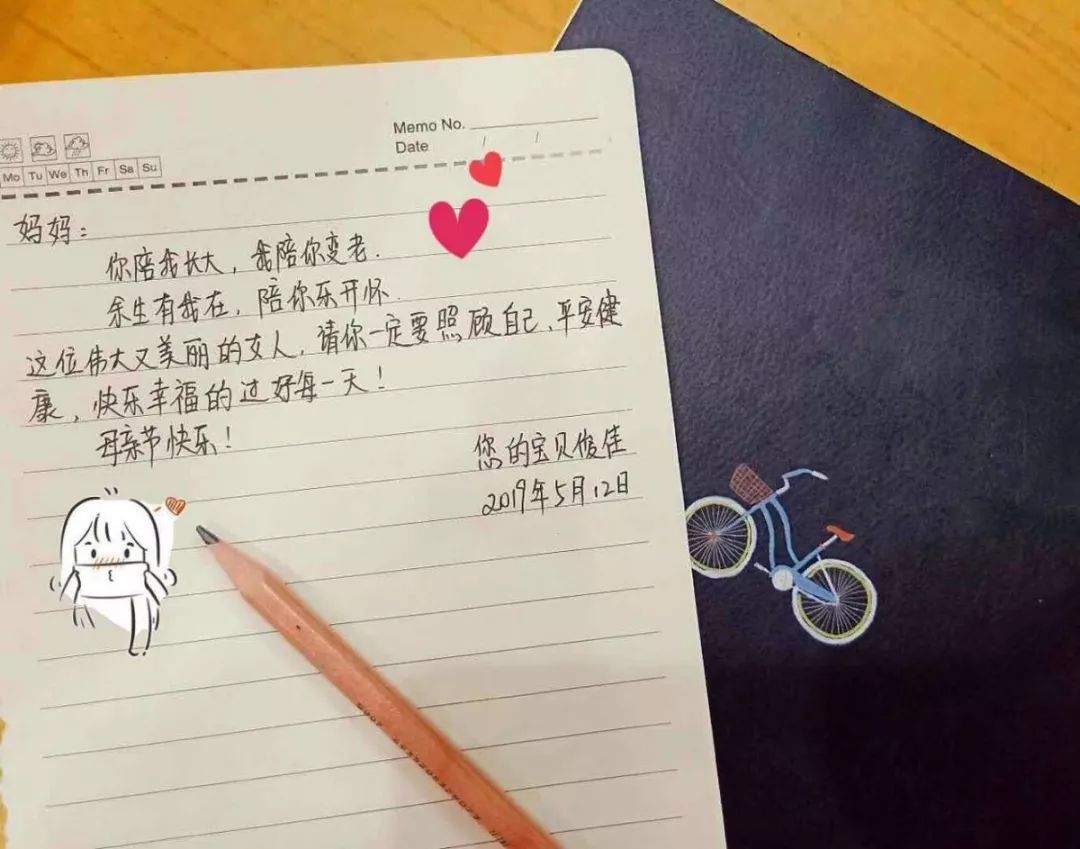 Memo No.
Date / /
Mo Tu We Th Fr Sa Su
妈妈：
你陪我长大，我陪你变老.
余生有我在，陪你乐开怀.
这位伟大又美丽的女人，请你一定要照顾自己、平安健
康，快乐幸福的过好每一天！
母亲节快乐！
您的宝贝俊佳
2019年5月12日